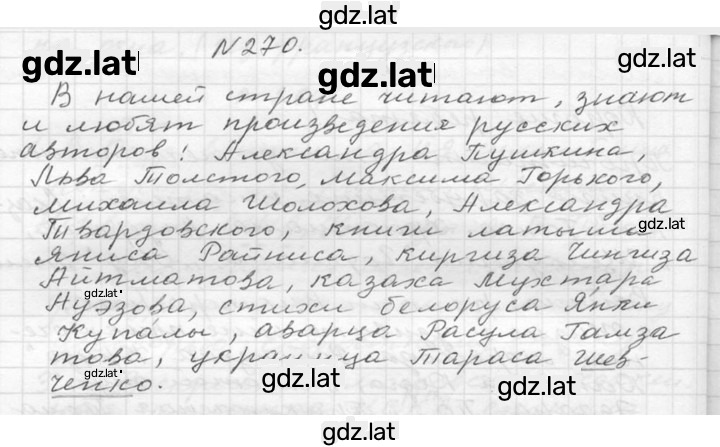 gdz.lat
№270.
gdz.lat
gdz.lat
gdz.lat
В нашей стране читают, знают
и любят произведения русских
авторов: Александра Пушкина,
Льва Толстого, Максима Горького,
Михаила Шолохова, Александра
gdz.lat
Твардовского, книги латыша
Яниса Райниса, киргиза Чингиза
Айтматова, казаха Мухтара
gdz.lat
Ауэзова, стихи белоруса Янки
Купалы, аварца Расула Гамза
това, украинца Тараса Шев-
gdz.lat
ченко.
gdz.lat
gdz.lat
gdz.lat